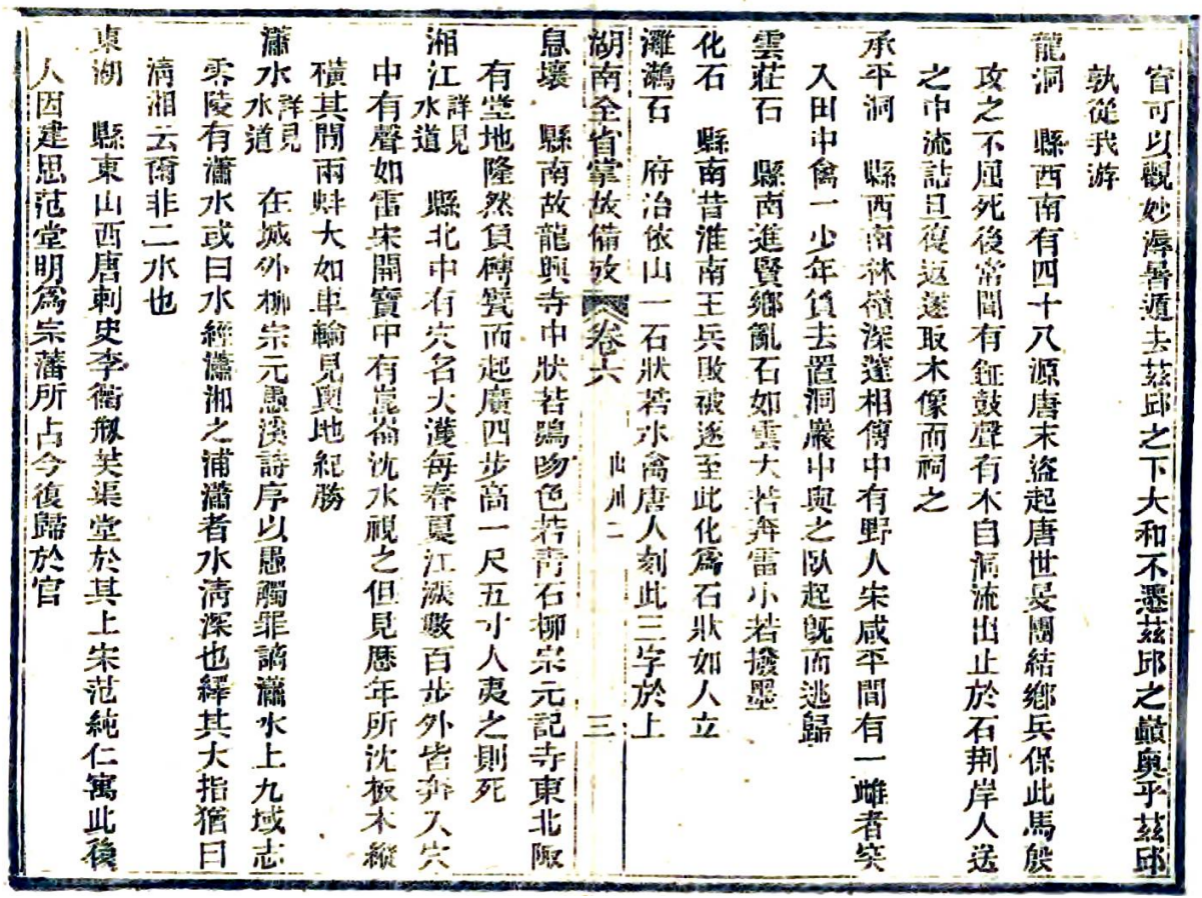 窅可以觀妙溽暑遁去茲邱之下大和不遷茲邱之巔奥乎茲邱
孰從我游
龍洞　縣西南有四十八源唐末盜起唐世旻團結鄉兵保此馬殷
攻之不屈死後常聞有鉦鼓聲有木自洞流出止於石荆岸人送
之中流詰旦復返遂取木像而祠之
承平洞　縣西南林嶺深邃相傳中有野人宋咸平間有一雌者突
入田中禽一少年負去置洞巖中與之臥起旣而逃歸
雲莊石　縣南進賢鄉亂石如雲大若奔雷小若撥墨
化石　縣南昔淮南王兵敗被逐至此化爲石狀如人立
灘鵜石　府治依山一石狀若水禽唐人刻此三字於上
湖南全省掌故備攷　卷六　山川二　三
息壤　縣南故龍興寺中狀若鴟吻色若靑石柳宗元記寺東北陬
有堂地隆然負磚甓而起廣四步高一尺五寸人夷之則死
湘江詳見水道　縣北中有穴名大濩每春夏江漲數百步外皆奔入穴
中有聲如雷宋開寶中有崑崙沈水視之但見歷年所沈板木縱
橫其間兩蚌大如車輪見輿地紀勝
瀟水詳見水道　在城外柳宗元愚溪詩序以愚觸罪謫瀟水上九域志
零陵有瀟水或曰水經瀟湘之浦瀟者水淸深也繹其大指猶曰
淸湘云爾非二水也
東湖　縣東山西唐刺史李衢剏芙渠堂於其上宋范純仁寓此後
人因建思范堂明爲宗藩所占今復歸於官